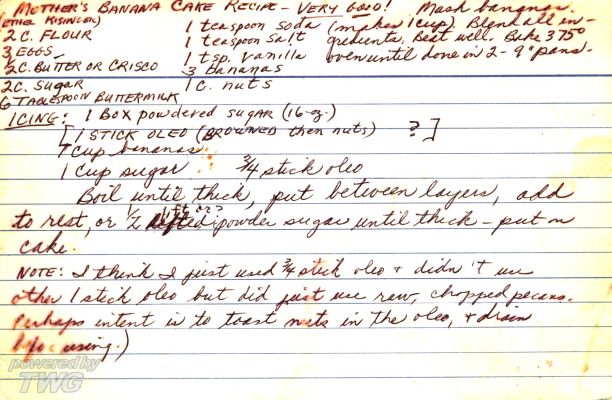 MOTHER'S BANANA CAKE RECIPE - VERY GOOD! Mash bananas
(ETHER KISINGER) 1 teaspoon soda (makes 1 cup). Blend all in-
2 C. FLOUR 1 teaspoon salt gredients. Beat well. Bake 375°
3 EGGS 1 tsp. vanilla oven until done in 2 - 9" pans.
2 C. BUTTER OR CRISCO 3 bananas
2 C. SUGAR 1 C. nuts
6 TABLESPOON BUTTERMILK
ICING: 1 BOX POWDERED SUGAR (16-oz.)
[1 STICK OLEO (BROWNED then nuts) ?]
1 cup bananas
1 cup sugar 3/4 stick oleo
Boil until thick, put between layers, add
to rest, or 1/2 powder sugar until thick - put on
cake.
NOTE: I think I just used 3/4 stick oleo & didn't use
other 1 stick oleo but did just use raw, chopped pecans.
Perhaps intent is to toast nuts in the oleo, & drain
before using.)
powered by
TWG